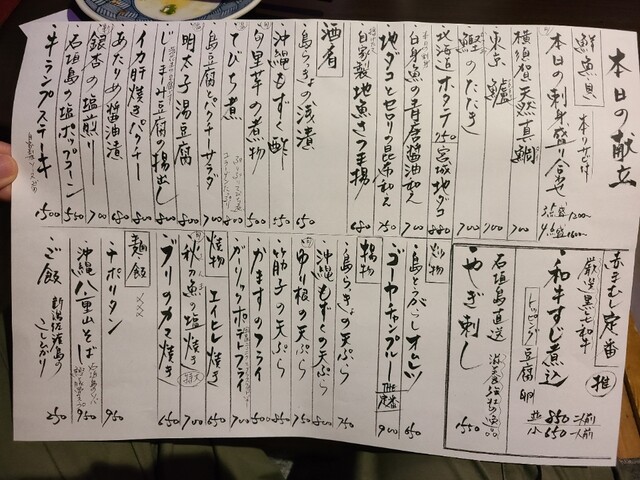 本日の献立
鮮魚貝
本日の刺身盛り合せ
3点盛 1200
横須賀 天然真鯛 700
東京 鱸 700
鰹のたたき 700
北海道ホタテ 750 宮城地ダコ 880
白身魚の青唐醤油和え
地ダコとセロリの昆布和え 750
自家製 地魚さつま揚
酒肴
島らっきょの浅漬 650
沖縄もずく酢 550
里芋の煮物
てびち煮
島豆腐パクチーサラダ
明太子湯豆腐 880
じーまみ豆腐の揚出し
イカ肝焼きパクチー
あたりめ醤油漬 680
銀杏の塩煎り 700
石垣島の塩ポップコーン 550
牛ランプステーキ 1500
赤まむし定番
厳選黒毛和牛
推
・和牛すじ煮込
トッピング 豆腐 卵
並 850 二人前
小 650 一人前
石垣島直送
・やぎ刺し
1550
炒物
・島とうがらしオムレツ 650
・ゴーヤチャンプルー THE定番 900
揚物
・島らっきょの天ぷら 750
・沖縄もずくの天ぷら 800
・ゆり根の天ぷら
・筋子の天ぷら
・かますのフライ 500
・ガーリックポテトフライ
焼物
・エイヒレ焼き 650
・秋刀魚の塩焼き 700
・ブリのカマ焼き 650
麺飯
・ナポリタン 950
・沖縄八重山そば 950
・ご飯 新潟佐渡島のこしひかり 250